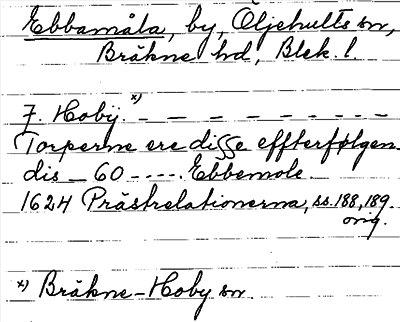 Ebbamåla, by, Öljehults sn,
Bräkne hd, Blek. l.
J. Hobij. x) — — — — — — — — —
Torperne ere disse effterfølgen-
dis — 60 - - - - - Ebbemole.
1624 Prästrelationerna, ss. 188, 189.
orig.
x) Bräkne-Hoby sn.